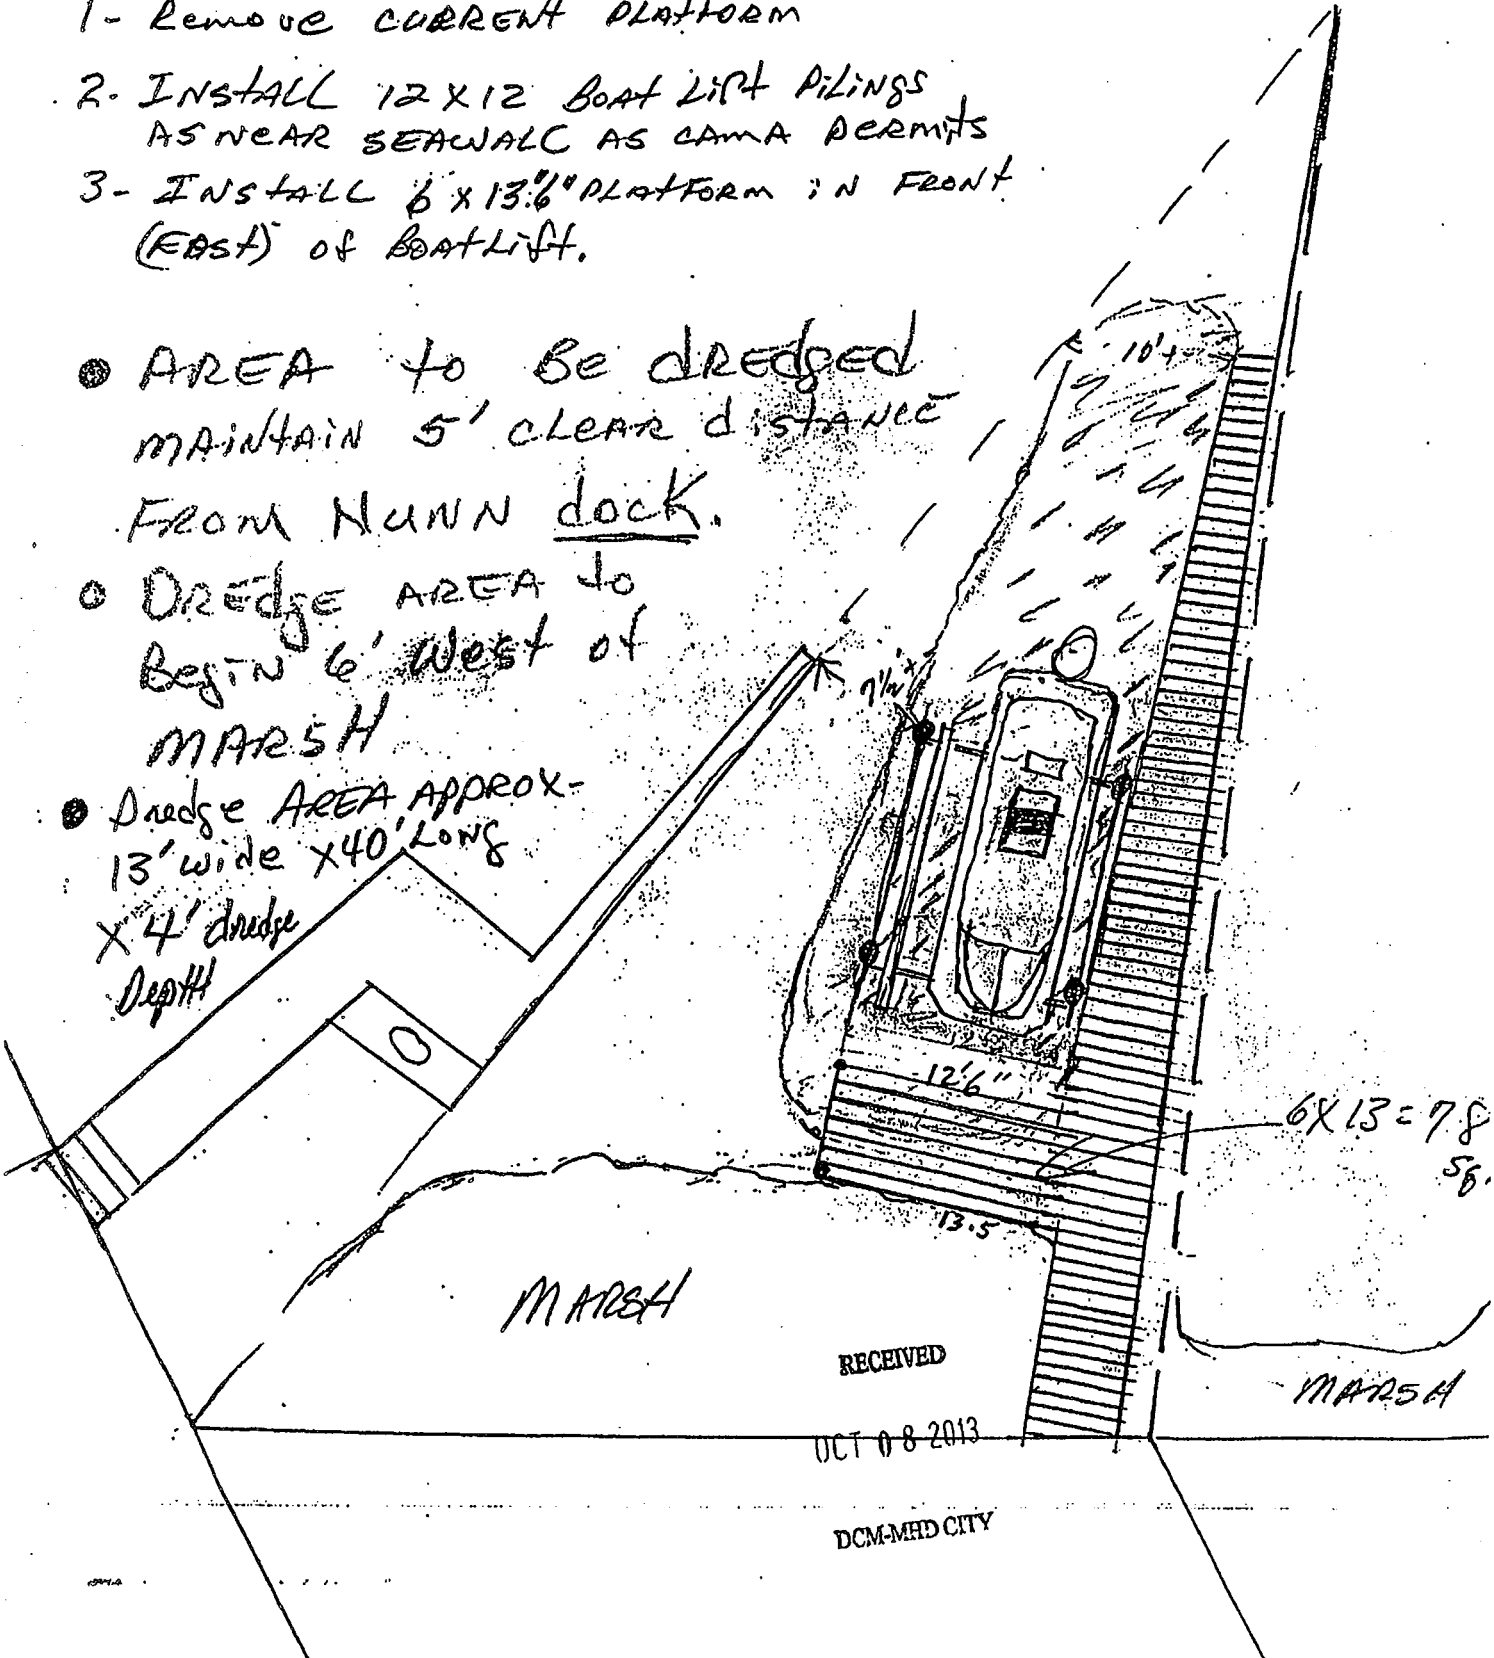 1- Remove CURRENT PLATFORM
2- INSTALL 12 X 12 BOAT LIFT PILINGS
AS NEAR SEAWALL AS CAMA PERMITS
3- INSTALL 6 X 13'6" PLATFORM IN FRONT
(EAST) of BOATLift.
AREA to Be dREdgEd
MAINTAIN 5' CLEAR dISTANCE
FROM NUNN dock.
DREdge AREA to
Begin 6' West of
MARSH
Dredge AREA APPROX-
13' wide X 40' LONG
X 4' dredge
Depth
10'+
7 1/2'+
12'6"
6X13=78
SQ.
13.5
MARSH
RECEIVED
MARSH
OCT 08 2013
DCM-MHD CITY